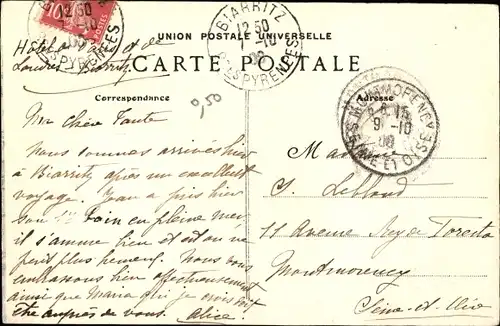 BIARRITZ
12 50
7 -10
BSSES PYRENEES
BIARRITZ
12 50
7 -10
BSSES PYRENEES
UNION POSTALE UNIVERSELLE
CARTE POSTALE
Hôtel de et de
Londres Biarritz
Correspondance
0,50
Adresse
MONTMORENCY
9 -10
SEINE ET OISE
Ma chère Tante
Nous sommes arrivés hier
à Biarritz après un excellent
voyage. Jean a pris hier
son 1er bain en pleine mer,
il s'amuse bien et est on ne
peut plus heureux. Nous vous
embrassons bien affectueusement
ainsi que Maria qui je crois doit
être auprès de vous. Alice
Madame
S. Lebland
11 Avenue Rey de
Montmorency
Seine-et-Oise